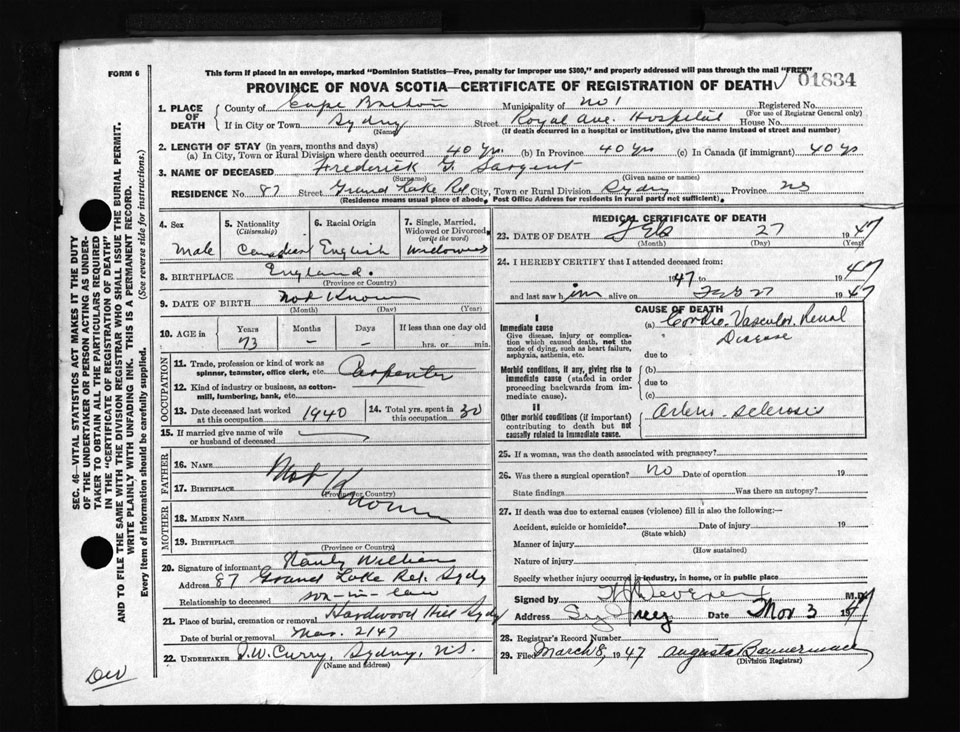 FORM 6
This form if placed in an envelope, marked "Dominion Statistics—Free, penalty for improper use $300," and properly addressed will pass through the mail "FREE"
PROVINCE OF NOVA SCOTIA—CERTIFICATE OF REGISTRATION OF DEATH
01834
SEC. 46—VITAL STATISTICS ACT MAKES IT THE DUTY
OF THE UNDERTAKER OR PERSON ACTING AS UNDER-
TAKER TO OBTAIN ALL THE PARTICULARS REQUIRED
IN THE "CERTIFICATE OF REGISTRATION OF DEATH"
AND TO FILE THE SAME WITH THE DIVISION REGISTRAR WHO SHALL ISSUE THE BURIAL PERMIT.
WRITE PLAINLY WITH UNFADING INK. THIS IS A PERMANENT RECORD.
Every item of information should be carefully supplied. (See reverse side for instructions.)
1. PLACE OF DEATH
County of Cape Breton Municipality of No 1 Registered No.
(For use of Registrar General only)
If in City or Town Sydney Street Royal Ave. Hospital House No.
(Name) (If death occurred in a hospital or institution, give the name instead of street and number)
2. LENGTH OF STAY (in years, months and days)
(a) In City, Town or Rural Division where death occurred 40 Yrs. (b) In Province 40 Yrs (c) In Canada (if immigrant) 40 ys
3. NAME OF DECEASED Frederick G. Sargent
(Surname) (Given name or names)
RESIDENCE No. 87 Street Grand Lake Rd. City, Town or Rural Division Sydney Province NS
(Residence means usual place of abode. Post Office Address for residents in rural parts not sufficient).
4. Sex
Male
5. Nationality
(Citizenship)
Canadian
6. Racial Origin
English
7. Single, Married,
Widowed or Divorced
(write the word)
Widower
8. BIRTHPLACE England.
(Province or Country)
9. DATE OF BIRTH Not Known
(Month) (Day) (Year)
10. AGE in
Years Months Days If less than one day old
73 – – hrs. or min.
OCCUPATION
11. Trade, profession or kind of work as
spinner, teamster, office clerk, etc. Carpenter
12. Kind of industry or business, as cotton-
mill, lumbering, bank, etc.
13. Date deceased last worked
at this occupation 1940
14. Total yrs. spent in
this occupation 30
15. If married give name of wife
or husband of deceased
FATHER
16. NAME
17. BIRTHPLACE
(Province or Country)
Not Known
MOTHER
18. MAIDEN NAME
19. BIRTHPLACE
(Province or Country)
20. Signature of informant
Address 87 Grand Lake Rd. Sydney
Relationship to deceased son-in-law
21. Place of burial, cremation or removal Hardwood Hill Sydney
Date of burial or removal Mar. 2 1 47
22. UNDERTAKER D.W. Curry, Sydney, N.S.
(Name and address)
MEDICAL CERTIFICATE OF DEATH
23. DATE OF DEATH Feb 27 1947
(Month) (Day) (Year)
24. I HEREBY CERTIFY that I attended deceased from:
1947 to 1947
and last saw him alive on Feb 27 1947
CAUSE OF DEATH
I
Immediate cause
Give disease, injury or complica-
tion which caused death, not the
mode of dying, such as heart failure,
asphyxia, asthenia, etc.
(a) Cardio-Vascular Renal
Disease
due to
Morbid conditions, if any, giving rise to
immediate cause (stated in order
proceeding backwards from im-
mediate cause).
(b)
due to
(c)
II
Other morbid conditions (if important)
contributing to death but not
causally related to immediate cause.
Arterio-sclerosis
25. If a woman, was the death associated with pregnancy?
26. Was there a surgical operation? No Date of operation 19
State findings Was there an autopsy?
27. If death was due to external causes (violence) fill in also the following:—
Accident, suicide or homicide? Date of injury 19
(State which)
Manner of injury
(How sustained)
Nature of injury
Specify whether injury occurred in industry, in home, or in public place
Signed by M.D.
Address Sydney Date Mar 3 1947
28. Registrar's Record Number
29. Filed March 8, 1947 Augusta Bannerman
(Division Registrar)